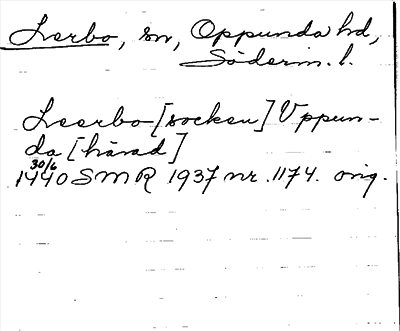 Lerbo, sn, Oppunda hd,
Söderm. l.
Leerbo [socken] Uppun-
da [härad]
30/6
1440 SMR 1937 nr. 1174. orig.